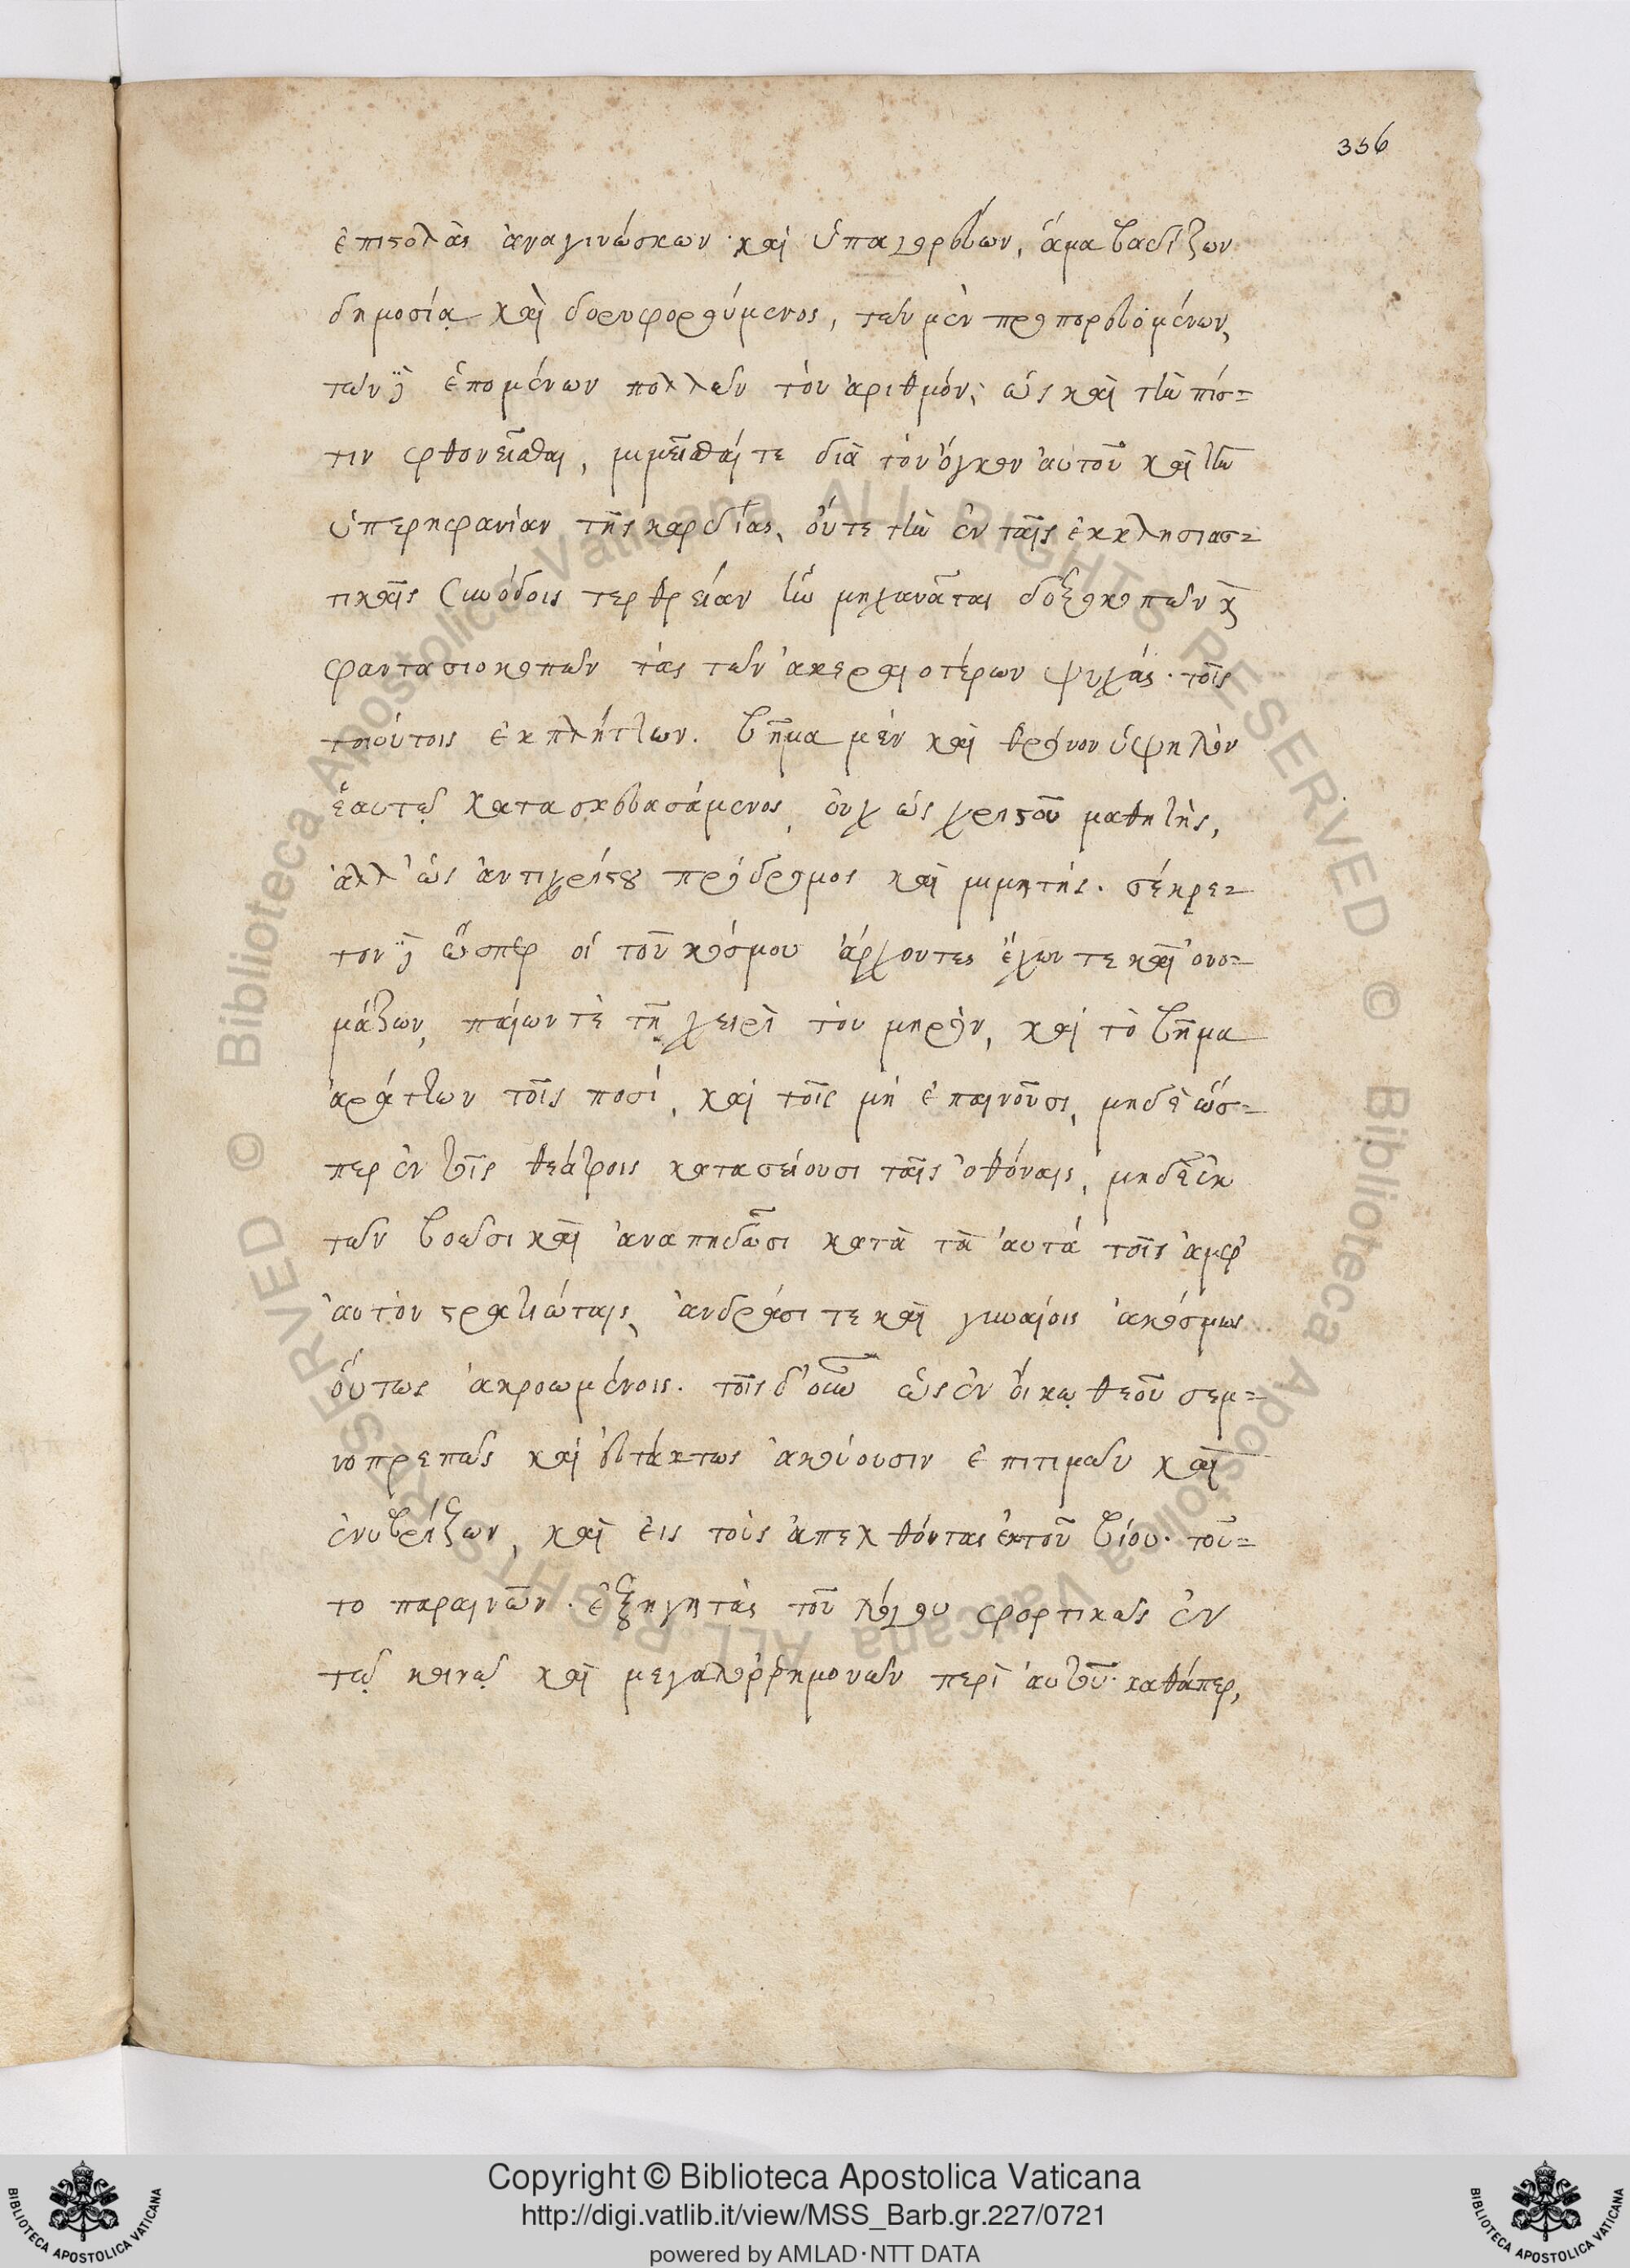 336
ἐπιστολὰς ἀναγινώσκων καὶ ὑπαγορεύων, ἅμα βαδίζων
δημοσίᾳ καὶ δορυφορούμενος, τῶν μὲν προπορευομένων,
τῶν δὲ ἑπομένων πολλῶν τὸν ἀριθμόν, ὡς καὶ τὴν πίσ=
τιν φθονεῖσθαι, μιμεῖσθαί τε διὰ τὸν ὄγκον αὐτοῦ καὶ τὴν
ὑπερηφανίαν τῆς καρδίας, οὔτε τὴν ἐν ταῖς ἐκκλησιασ=
τικαῖς συνόδοις τερθρείαν ἣν μηχανᾶται δοξοκοπῶν καὶ
φαντασιοκοπῶν τὰς τῶν ἀκεραιοτέρων ψυχάς. τοῖς
τοιούτοις ἐκπλήττων. βῆμα μὲν καὶ θρόνον ὑψηλὸν
ἑαυτῷ κατασκευασάμενος, οὐχ ὡς χριστοῦ μαθητὴς,
ἀλλ' ὡς ἀντιχρίστου πρόδρομος καὶ μιμητής. σέκρε=
τον δὲ ὥσπερ οἱ τοῦ κόσμου ἄρχοντες ἔχων τε καὶ ὀνο=
μάζων, παίων τὲ τῇ χειρὶ τὸν μηρὸν, καὶ τὸ βῆμα
ἀράττων τοῖς ποσί, καὶ τοῖς μὴ ἐπαινοῦσι, μηδὲ ὥσ=
περ ἐν τοῖς θεάτροις κατασείουσι ταῖς ὀθόναις, μηδὲ ἐκ
τῶν βοῶσι καὶ ἀναπηδῶσι κατὰ τὰ αὐτά τοῖς ἀμφ'
αὐτὸν στρατιώταις, ἀνδράσι τε καὶ γυναίοις ἀκόσμως
οὕτως ἀκροωμένοις. τοῖς δ' οὖν ὡς ἐν οἴκῳ θεοῦ σεμ=
νοπρεπῶς καὶ εὐτάκτως ἀκούουσιν ἐπιτιμῶν καὶ
ἐνυβρίζων, καὶ εἰς τοὺς ἀπελθόντας ἐκ τοῦ βίου. τοῦ=
το παραινῶν. ἐξηγητὰς τοῦ λόγου φορτικῶς ἐν
τῷ κοινῷ καὶ μεγαλορρημονῶν περὶ αὐτοῦ καθάπερ,
Copyright © Biblioteca Apostolica Vaticana
http://digi.vatlib.it/view/MSS_Barb.gr.227/0721
powered by AMLAD·NTT DATA
BIBLIOTECA APOSTOLICA VATICANA
BIBLIOTECA APOSTOLICA VATICANA
© Biblioteca Apostolica Vaticana ALL RIGHTS RESERVED © Biblioteca Apostolica Vaticana ALL RIGHTS RESERVED